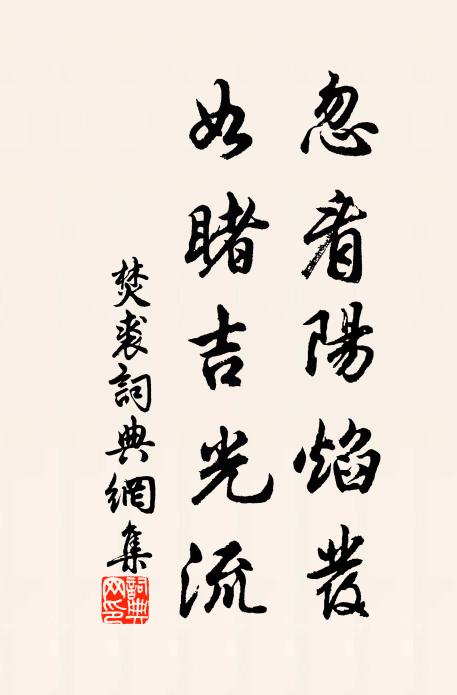 忽看陽焰發
如睹吉光流
焚裘詞典網集
詞典網印